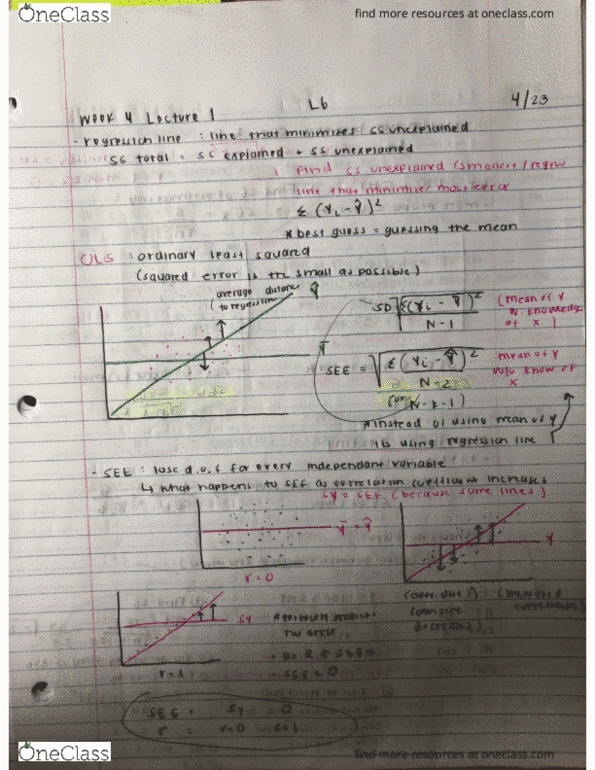 OneClass
find more resources at oneclass.com
Week 4 Lecture 1
L6
4/23
- regression line : line that minimizes SS unexplained
SS total = SS explained + SS unexplained
find SS unexplained (smallest /
line that minimize
Σ (Yi - Ŷ)²
* best guess = guessing the mean
OLS : ordinary least squared
(squared error is the small as possible)
average distance
to regression
Ŷ
SD √Σ(Yi - Ȳ)²
N-1
(mean of Y
of X)
Ȳ
SEE = √Σ(Yi - Ŷ)²
N-2
(or N-k-1)
mean of Y
w/o know of
X
* instead of using mean of Y
is using regression line
- SEE : lose d.o.f for every independant variable
↳ what happens to SEE as correlation coefficient increases
SY = SEE (because same lines)
Ȳ = Ŷ
r = 0
Y
SY
r = 1
SEE = 0
SEE = SY 0
r : r=0
OneClass
find more resources at oneclass.com